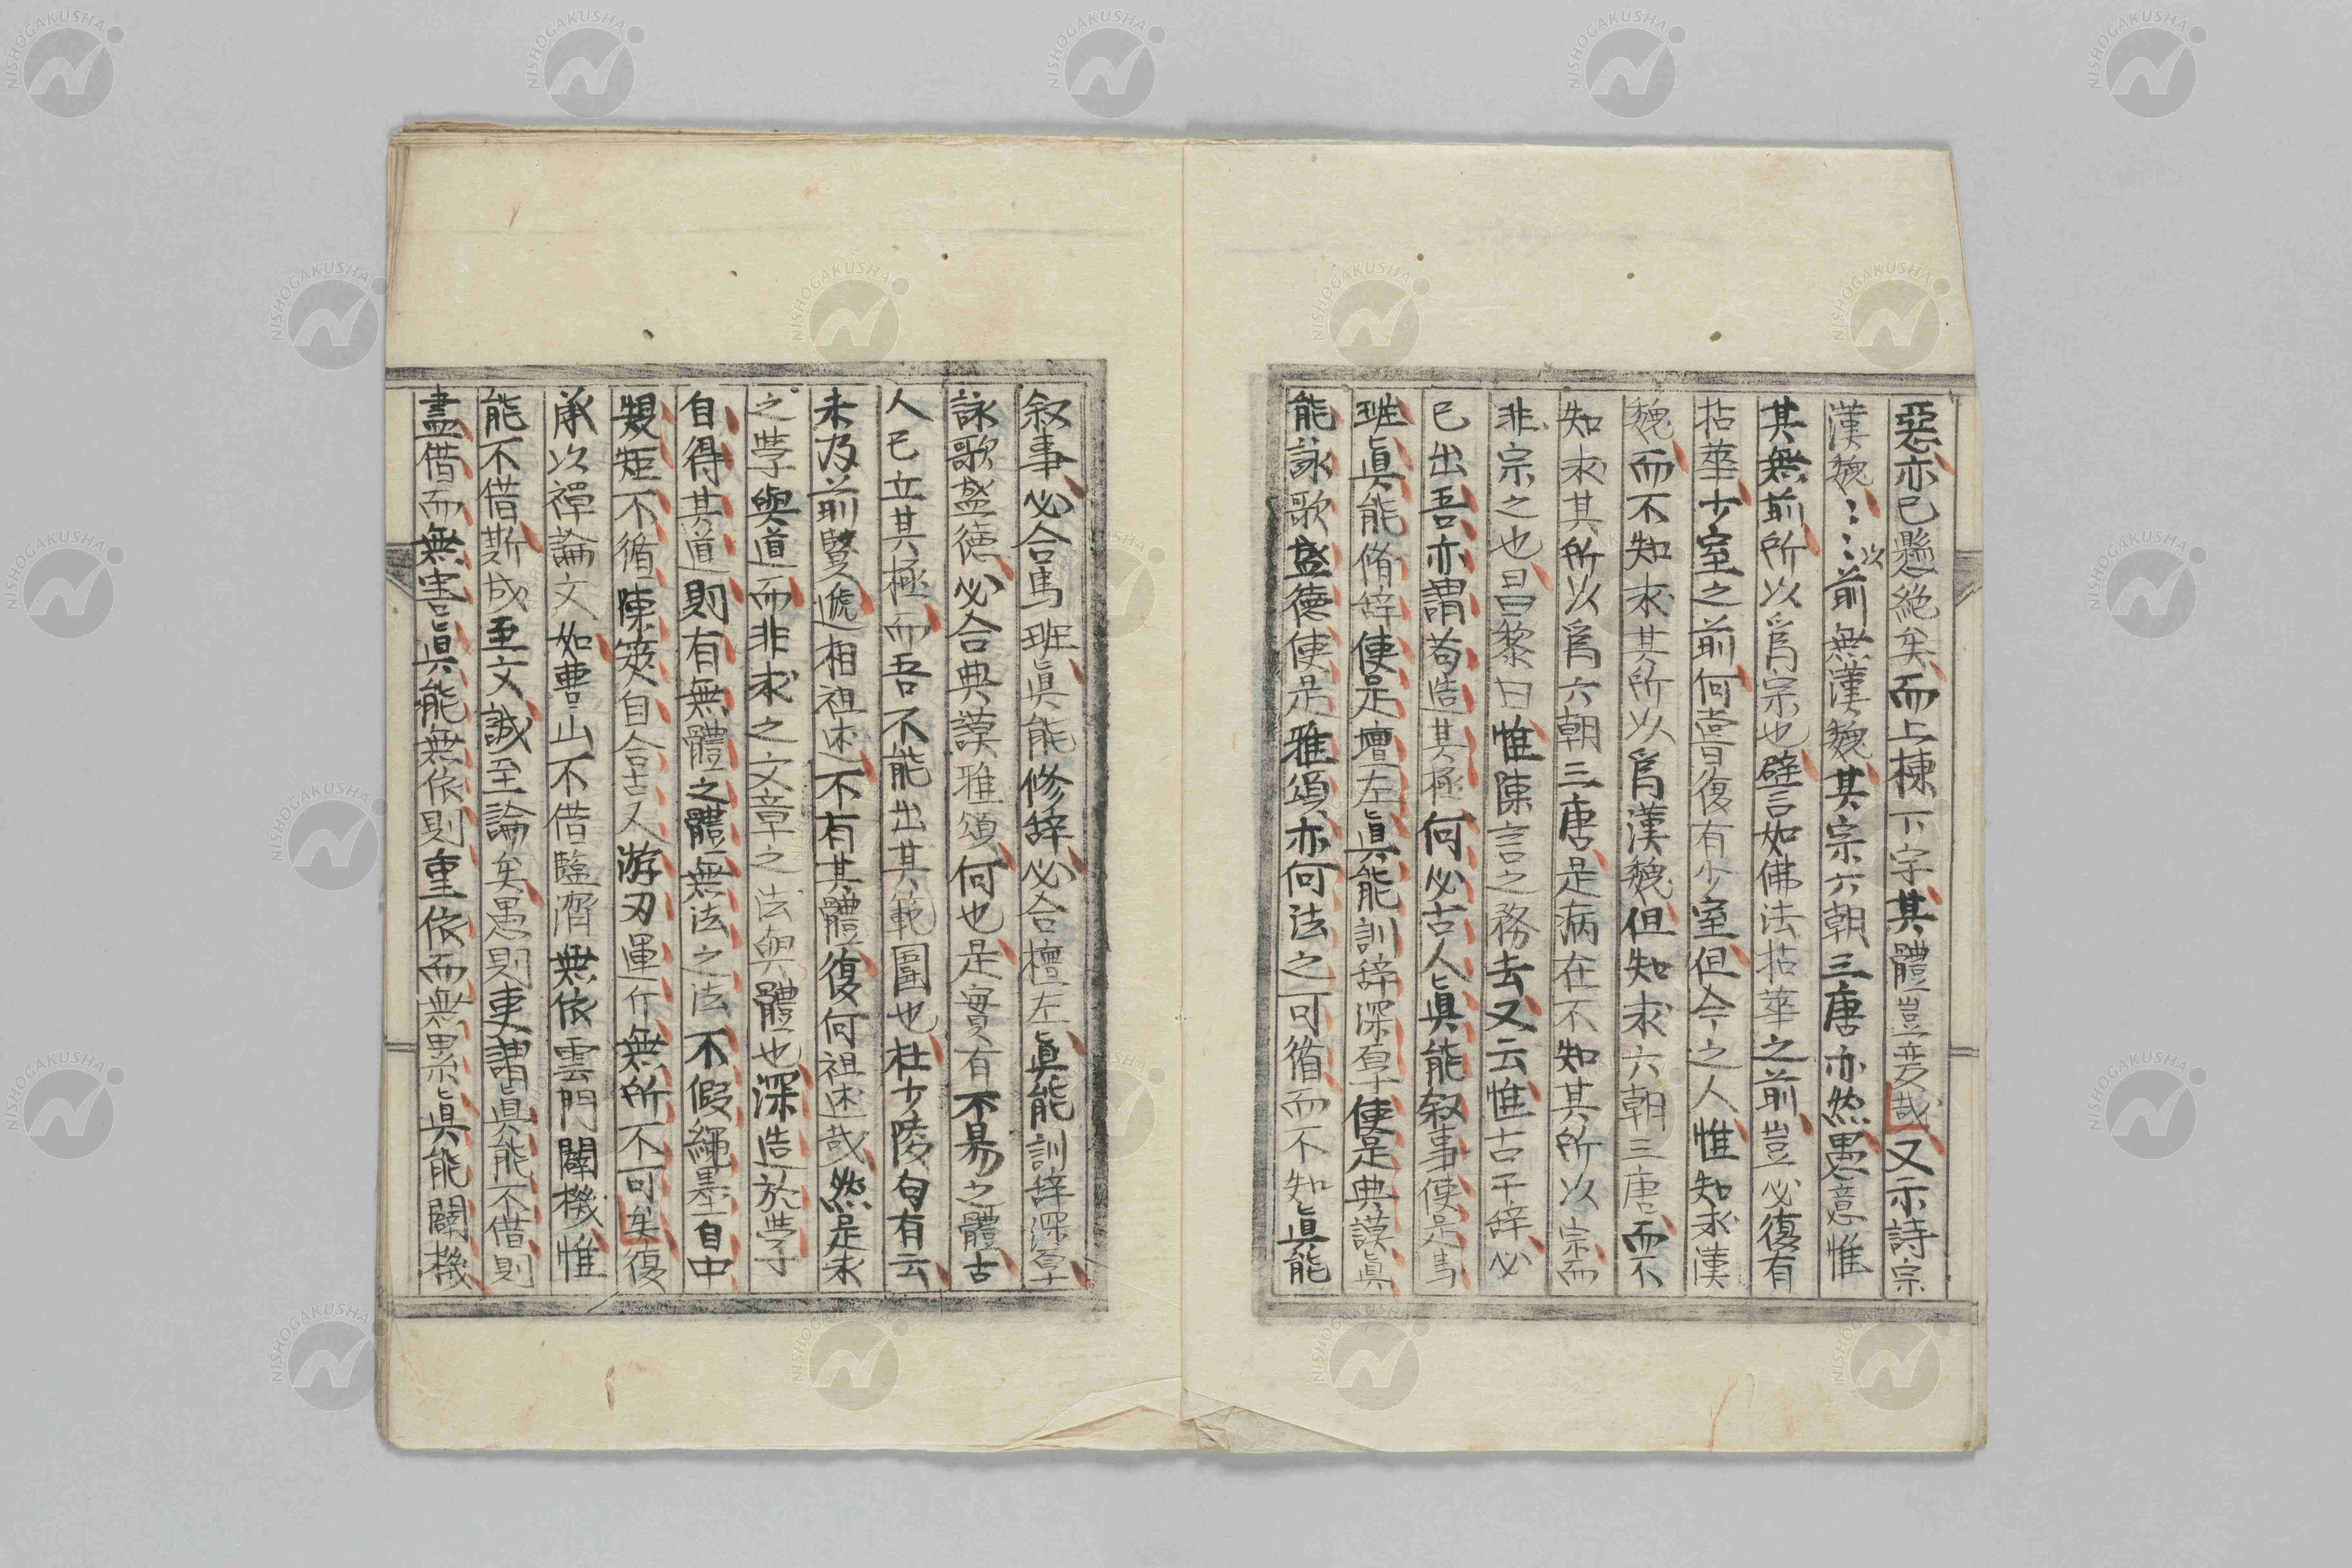 惡亦已懸絕矣而上棟下宇其體豈変哉又示詩宗
漢魏〻〻以前無漢魏其宗六朝三唐亦然愚意惟
其無前所以爲宗也譬言如佛法拈華之前豈必復有
拈華少室之前何嘗復有少室但今之人惟知求漢
魏而不知求其所以爲漢魏但知求六朝三唐而不
知求其所以爲六朝三唐是病在不知其所以宗而
非宗之也昌黎曰惟陳言之務去又云惟古于辞必
已出吾亦謂苟造其極何必古人眞能叙事使是馬
班眞能脩辞使是壇左眞能訓辞深厚使是典謨眞
能詠歌盛德使是雅頌亦何法之可循而不知眞能
叙事必合馬班眞能修辞必合檀左眞能訓辞深厚
詠歌盛德必合典謨雅頌何也是實有不易之體古
人已立其極而吾不能出其範圍也杜少陵句有云
未及前賢遞相祖述不有其體復何祖述哉然是求
之學與道而非求之文章之法與體也深造於學
自得其道則有無體之體無法之法不假繩墨自中
規矩不循陳筴自合古人游刃運斤無所不可矣復
承以禪論文如曹山不借臨濟無依雲門關機惟
能不借斯成至文誠至論矣愚則更謂眞能不借則
盡借而無害眞能無依則重依而無累眞能關機